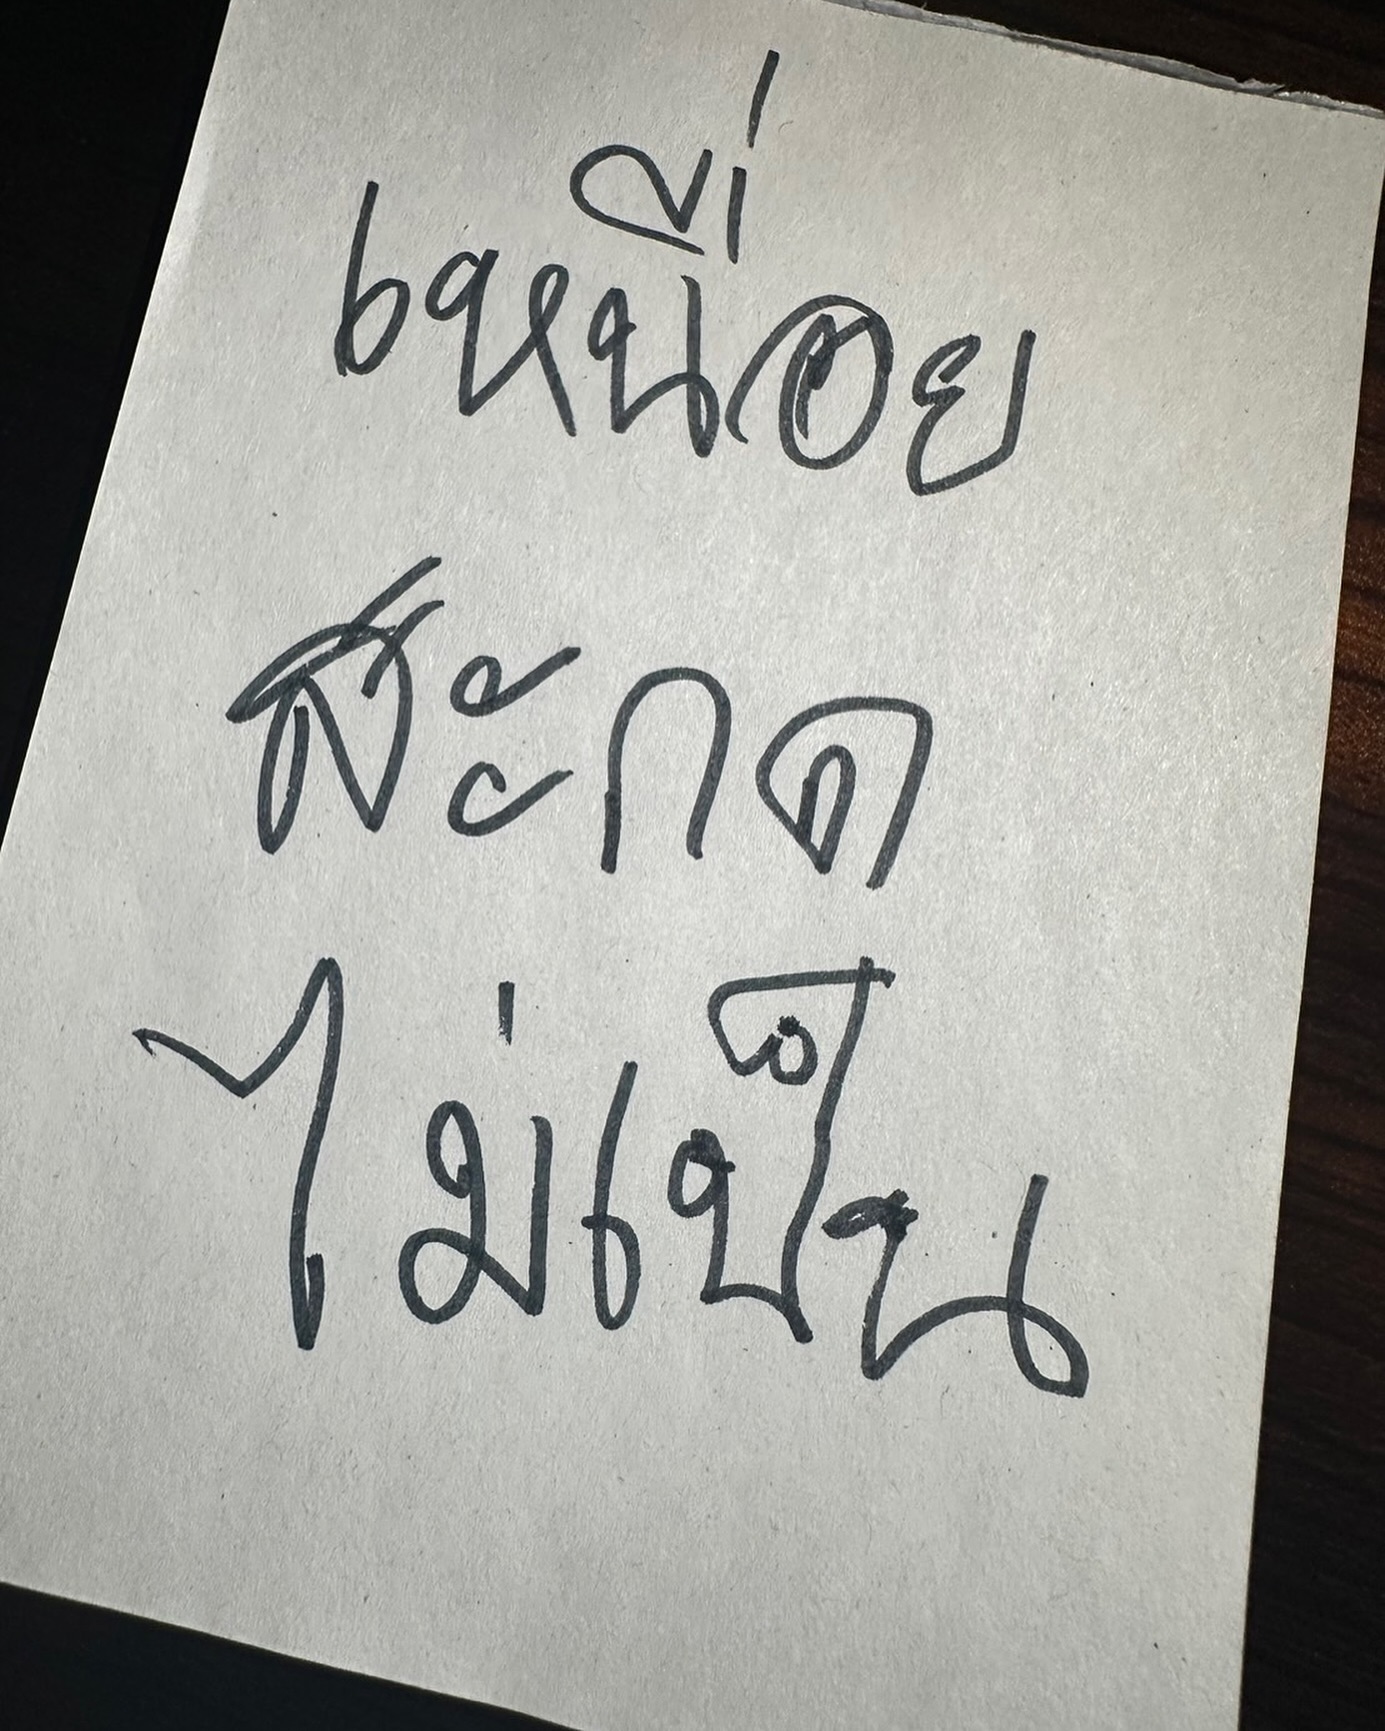 เหนื่อย
สะกด
ไม่เป็น